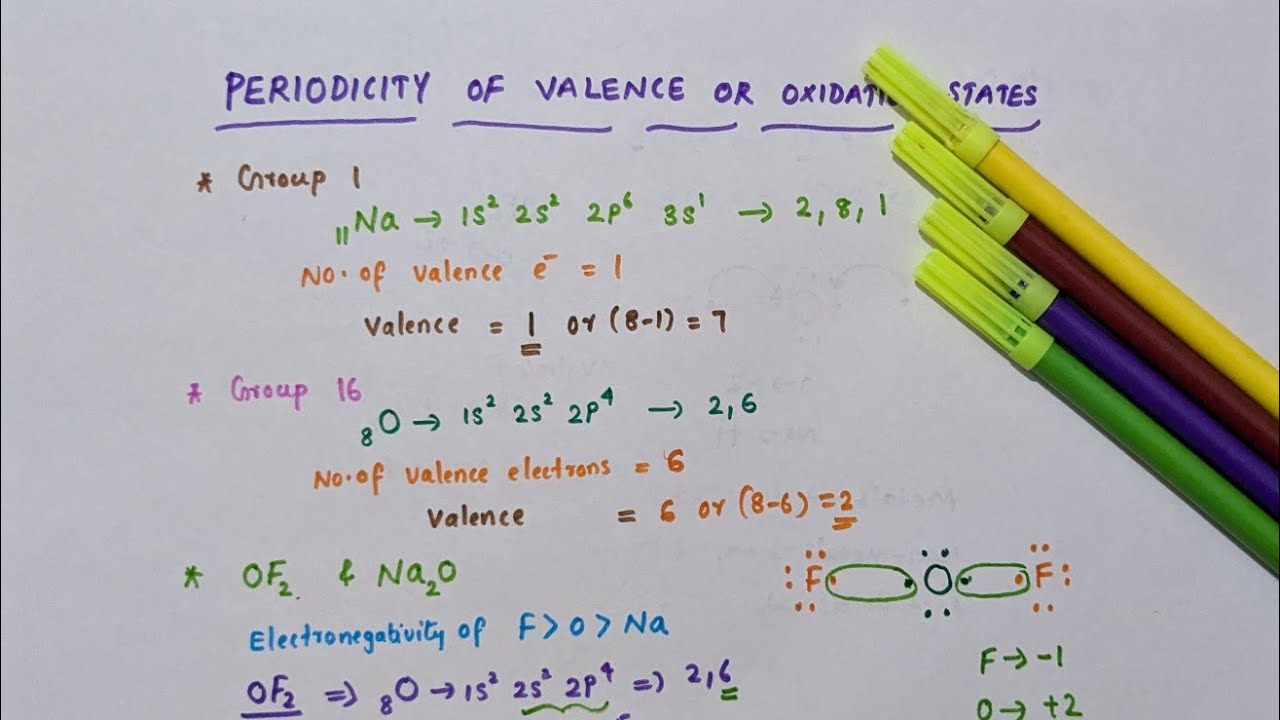 PERIODICITY OF VALENCE OR OXIDATI STATES
* Group 1
₁₁Na → 1s² 2s² 2p⁶ 3s¹ → 2, 8, 1
No. of valence e⁻ = 1
Valence = 1 or (8-1) = 7
* Group 16
₈O → 1s² 2s² 2p⁴ → 2, 6
No. of valence electrons = 6
Valence = 6 or (8-6) = 2
* OF₂ & Na₂O
F O F
Electronegativity of F > O > Na
F → -1
OF₂ ⇒ ₈O → 1s² 2s² 2p⁴ ⇒ 2, 6
O → +2